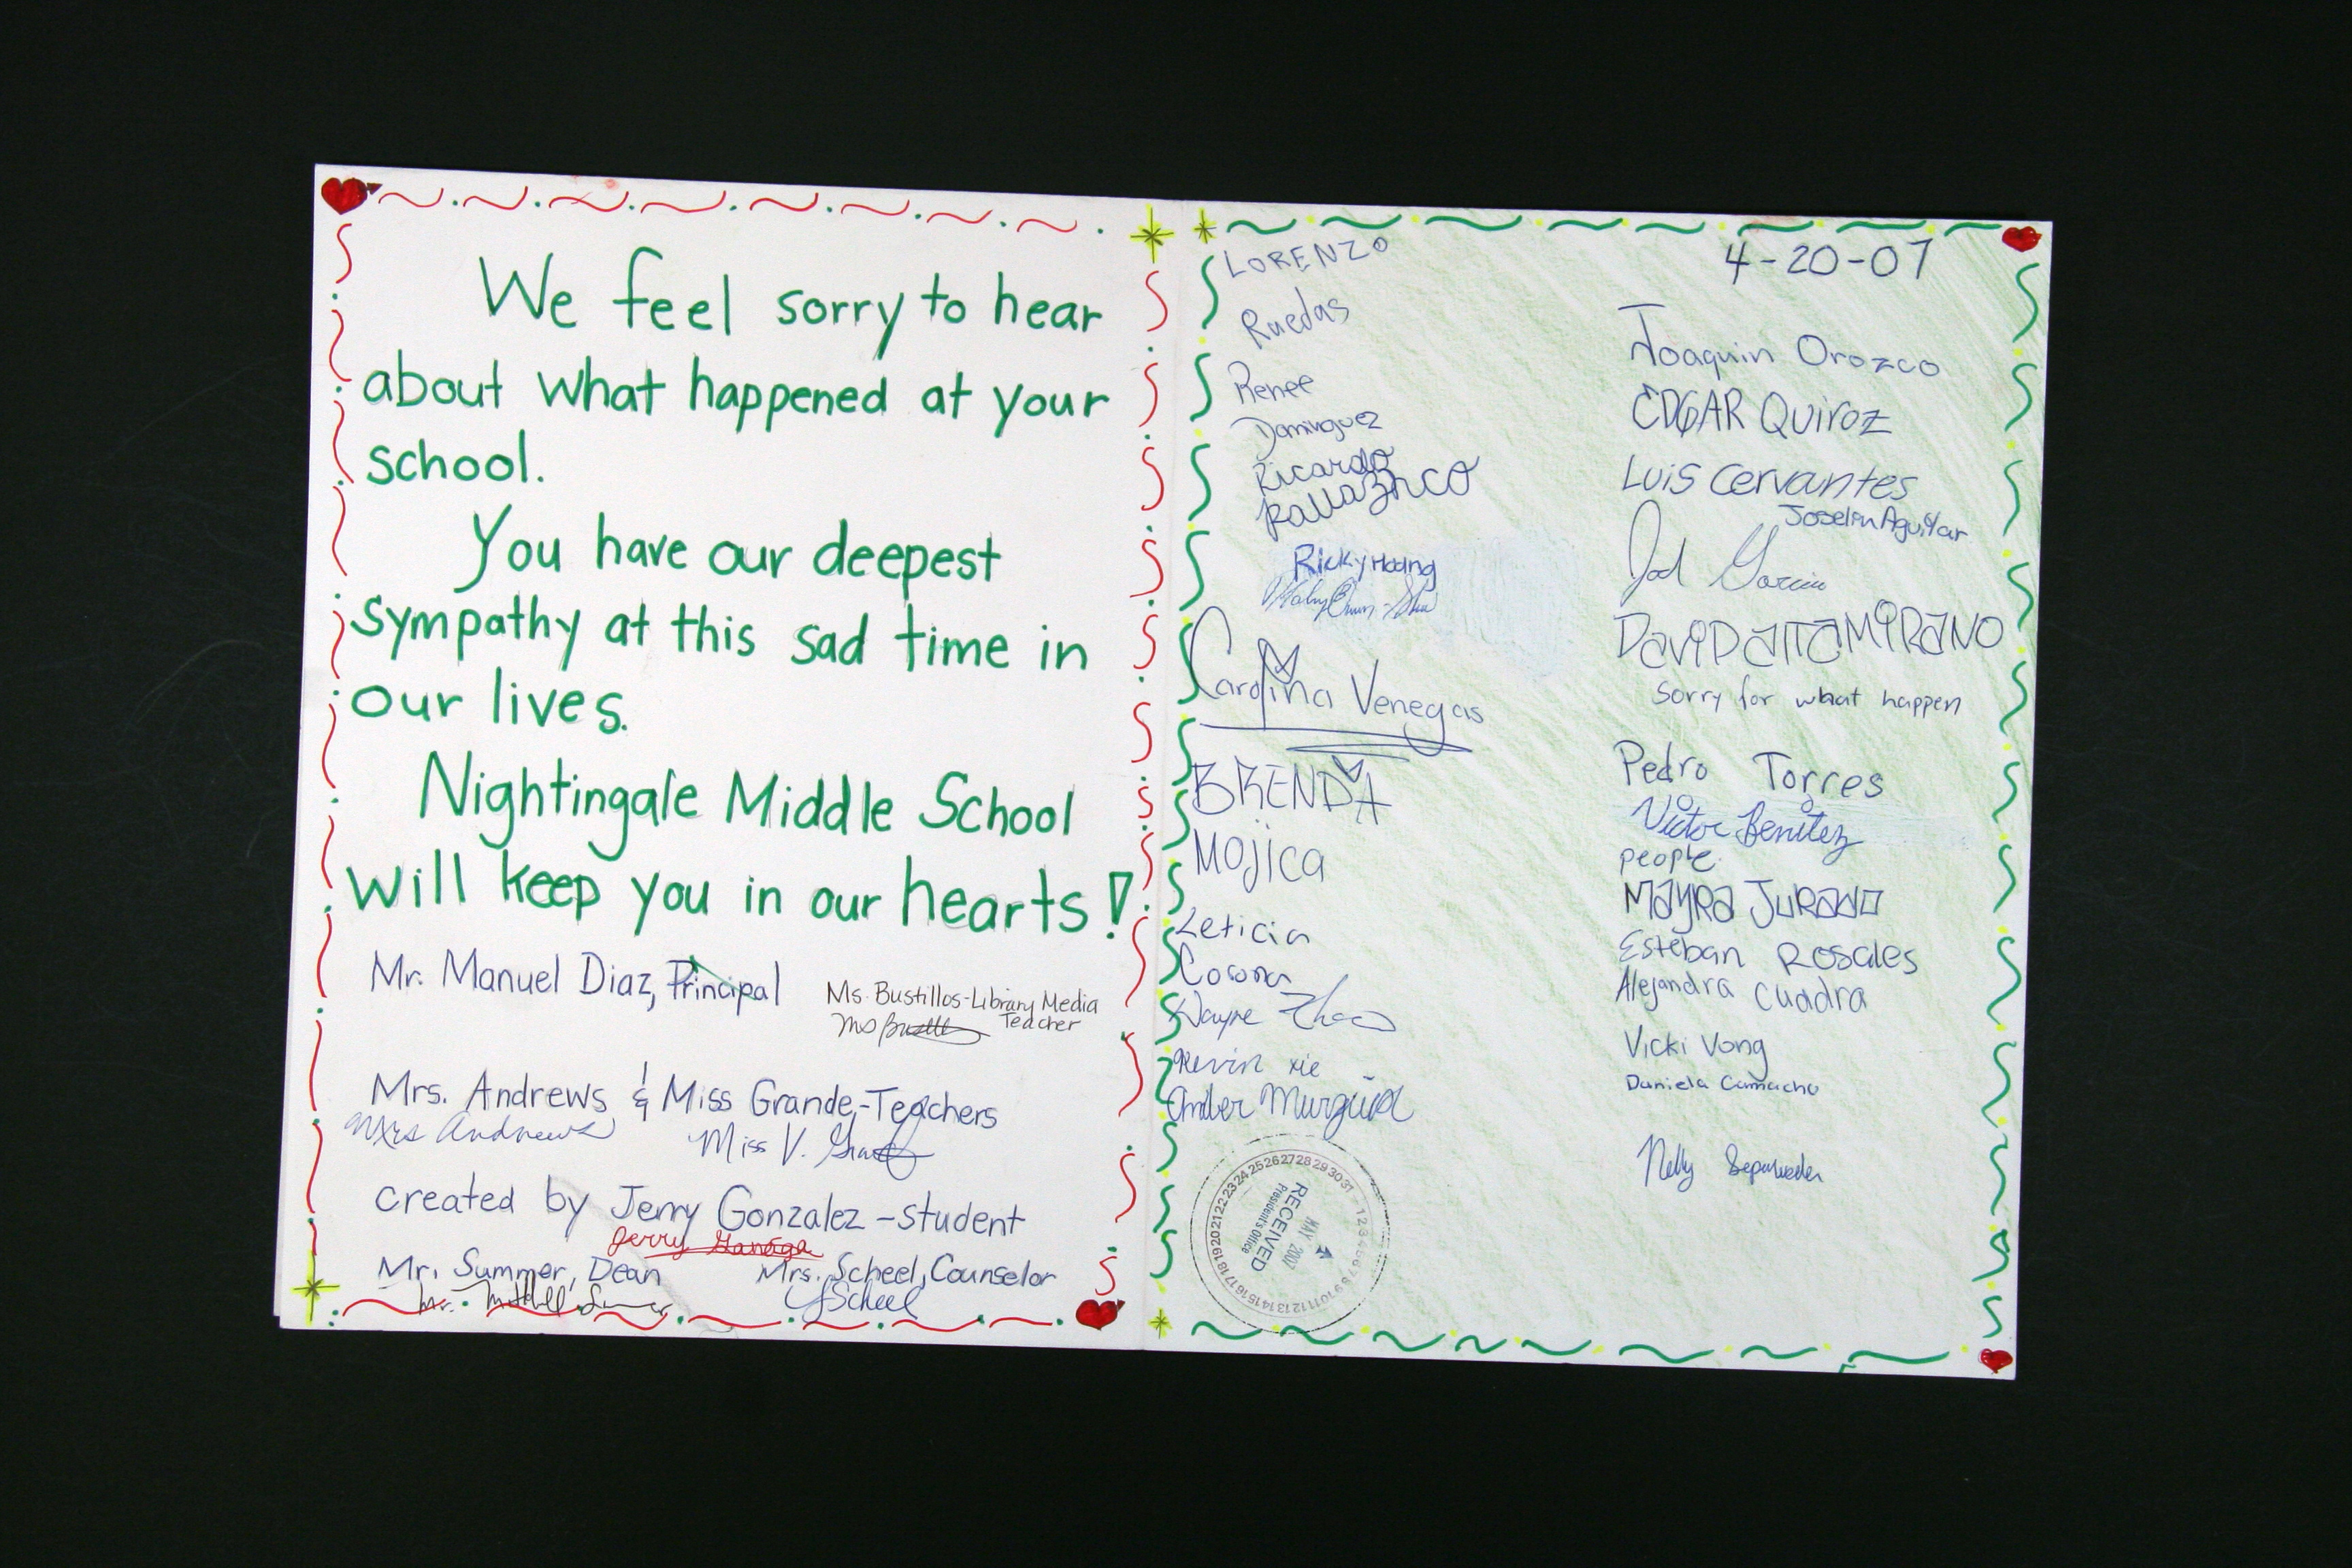 We feel sorry to hear
about what happened at your
school.
You have our deepest
sympathy at this sad time in
our lives.
Nightingale Middle School
will keep you in our hearts!
Mr. Manuel Diaz, Principal
Ms. Bustillos-Library Media
Teacher
Mrs. Andrews & Miss Grande,-Teachers
Mrs Andrews
Miss V.
created by Jerry Gonzalez -student
Jerry
Mr. Summer, Dean
Mrs. Scheel, Counselor
Mr. Mitchell
Scheel
LORENZO
Ruedas
Renee
Dominguez
Ricardo
Ricky Hoang
Carolina Venegas
BRENDA
Mojica
Leticia
Corona
Wayne Zhao
Kevin xie
Amber Murguia
RECEIVED
MAY 2007
President's Office
1 2 3 4 5 6 7 8 9 10 11 12 13 14 15 16 17 18 19 20 21 22 23 24 25 26 27 28 29 30 31
4-20-07
Joaquin Orozco
EDGAR Quiroz
Luis Cervantes
Joselin Aguilar
Garcia
DaviD alTaMiRaNO
Sorry for what happen
Pedro Torres
Victor Benitez
people
MayRa JuRado
Esteban Rosales
Alejandra Cuadra
Vicki Vong
Daniela Camacho
Nelly